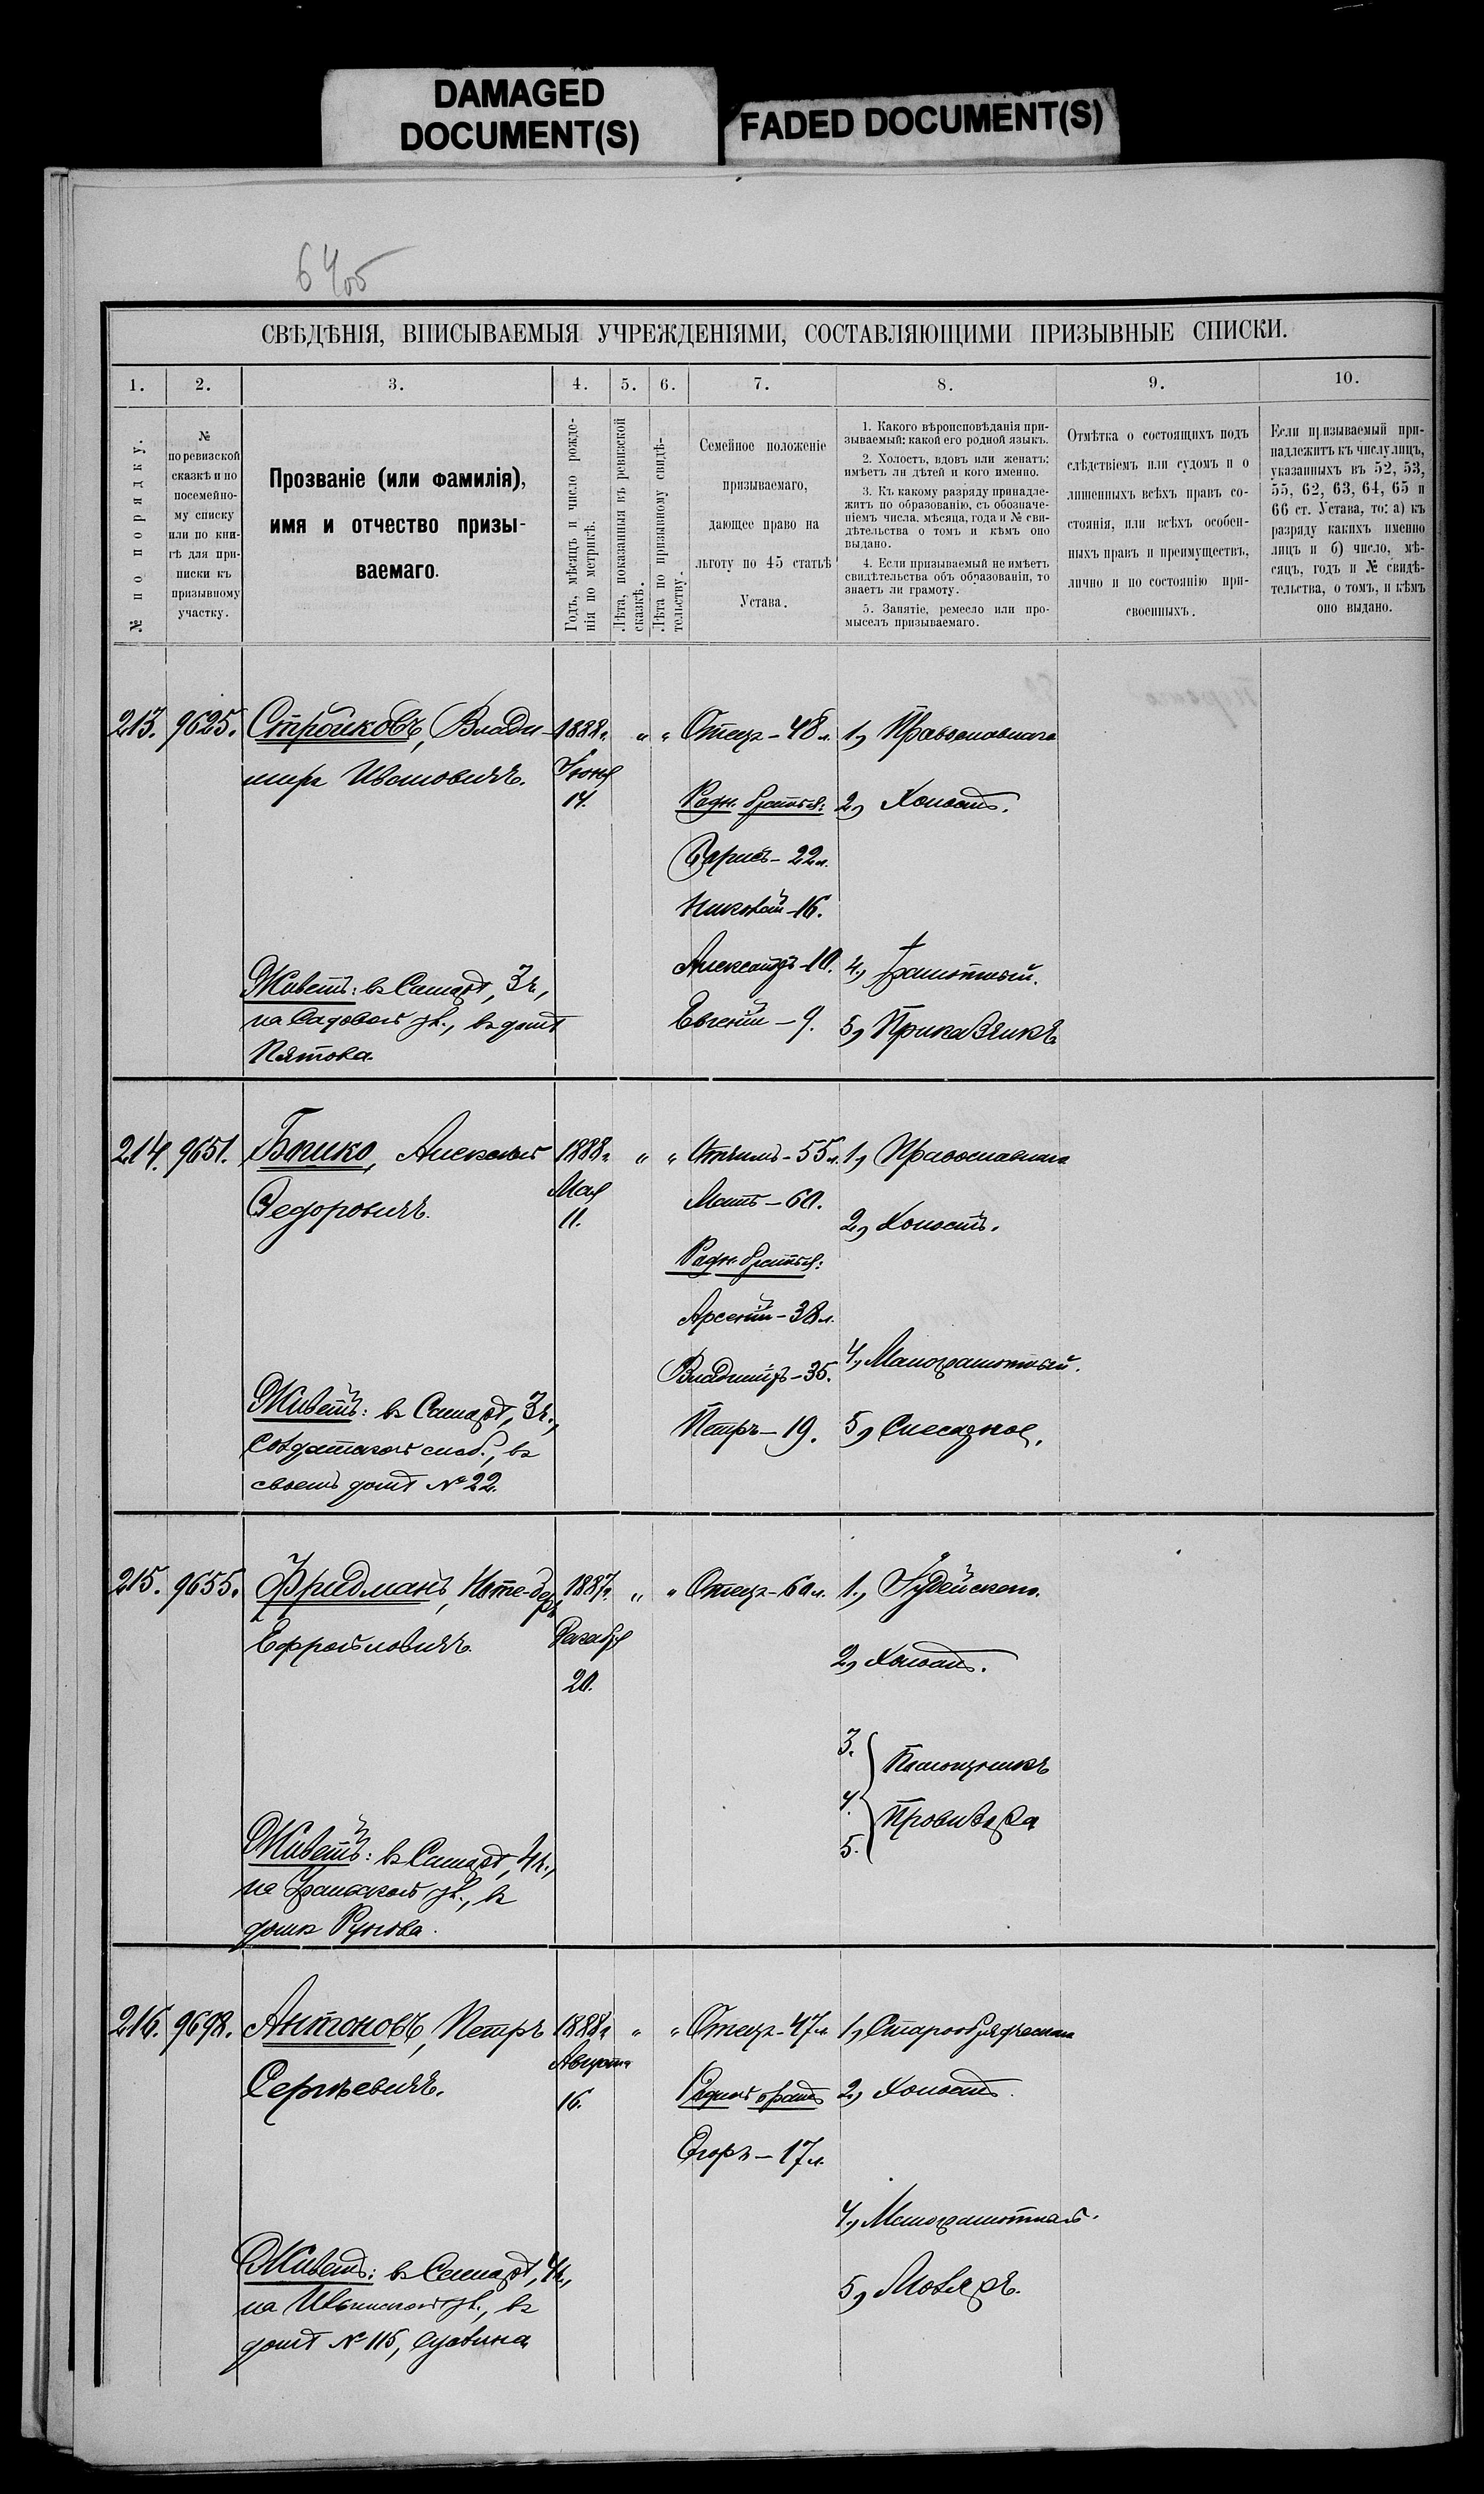 DAMAGED
DOCUMENT(S)
FADED DOCUMENT(S)
СВѢДѢНІЯ, ВПИСЫВАЕМЫЯ УЧРЕЖДЕНІЯМИ, СОСТАВЛЯЮЩИМИ ПРИЗЫВНЫЕ СПИСКИ.
1. 2. 3. 4. 5. 6. 7. 8. 9. 10.
№ по порядку.
№
по ревизской
сказкѣ и по
посемейно-
му списку
или по кни-
гѣ для при-
писки къ
призывному
участку.
Прозваніе (или фамилія),
имя и отчество призы-
ваемаго.
Годъ, мѣсяцъ и число рожде-
нія по метрикѣ.
Лѣта, показанныя въ ревизской
сказкѣ.
Лѣта по призывному свидѣ-
тельству.
Семейное положеніе
призываемаго,
дающее право на
льготу по 45 статьѣ
Устава.
1. Какого вѣроисповѣданія при-
зываемый: какой его родной языкъ.
2. Холостъ, вдовъ или женатъ:
имѣетъ ли дѣтей и кого именно.
3. Къ какому разряду принадле-
житъ по образованію, съ обозначе-
ніемъ числа, мѣсяца, года и № сви-
дѣтельства о томъ и кѣмъ оно
выдано.
4. Если призываемый не имѣетъ
свидѣтельства объ образованіи, то
знаетъ ли грамоту.
5. Занятіе, ремесло или про-
мыселъ призываемаго.
Отмѣтка о состоящихъ подъ
слѣдствіемъ или судомъ и о
лишенныхъ всѣхъ правъ со-
стоянія, или всѣхъ особен-
ныхъ правъ и преимуществъ,
лично и по состоянію при-
своенныхъ.
Если призываемый при-
надлежитъ къ числу лицъ,
указанныхъ въ 52, 53,
55, 62, 63, 64, 65 и
66 ст. Устава, то: а) къ
разряду какихъ именно
лицъ и б) число, мѣ-
сяцъ, годъ и № свидѣ-
тельства, о томъ, и кѣмъ
оно выдано.
213. 9625. Стройковъ, Влади- 1888г. " " Отецъ - 48 л. 1, Православнаго
миръ Ивановичъ. Іюня
14. Родн. братья: 2, Холостъ.
Борисъ - 22 л.
Николай - 16.
Александръ - 10. 4, Грамотный.
Евгеній - 9. 5, Приказчикъ
Живетъ: въ Самарѣ, 3 ч.,
на Садовой ул., въ домѣ
Пятова.
214. 9651. Бойко, Алексѣй 1888г. " " Отчимъ - 55 л. 1, Православнаго
Федоровичъ. Мая Мать - 60.
11. 2, Холостъ.
Родн. братья:
Арсеній - 38 л.
Владиміръ - 35. 4, Малограмотный.
Петръ - 19. 5, Слесарное.
Живетъ: въ Самарѣ, 3 ч.,
Солдатской слоб., въ
своемъ домѣ № 22.
215. 9655. Фридманъ, Ноте-Беръ 1887г. " " Отецъ - 60 л. 1, Іудейскаго.
Ефроимовичъ. Декабря
20. 2, Холостъ.
3. Помощникъ
4. Провизора
5.
Живетъ: въ Самарѣ, 4 ч.,
на ул., въ
домѣ
216. 9698. Антоновъ, Петръ 1888г. " " Отецъ - 47 л. 1, Старообрядческаго
Сергѣевичъ. Августа
16. Родной братъ 2, Холостъ.
Егоръ - 17 л.
4, Малограмотный.
5, Маляръ.
Живетъ: въ Самарѣ, 4 ч.,
на Ильинской ул., въ
домѣ № 115,